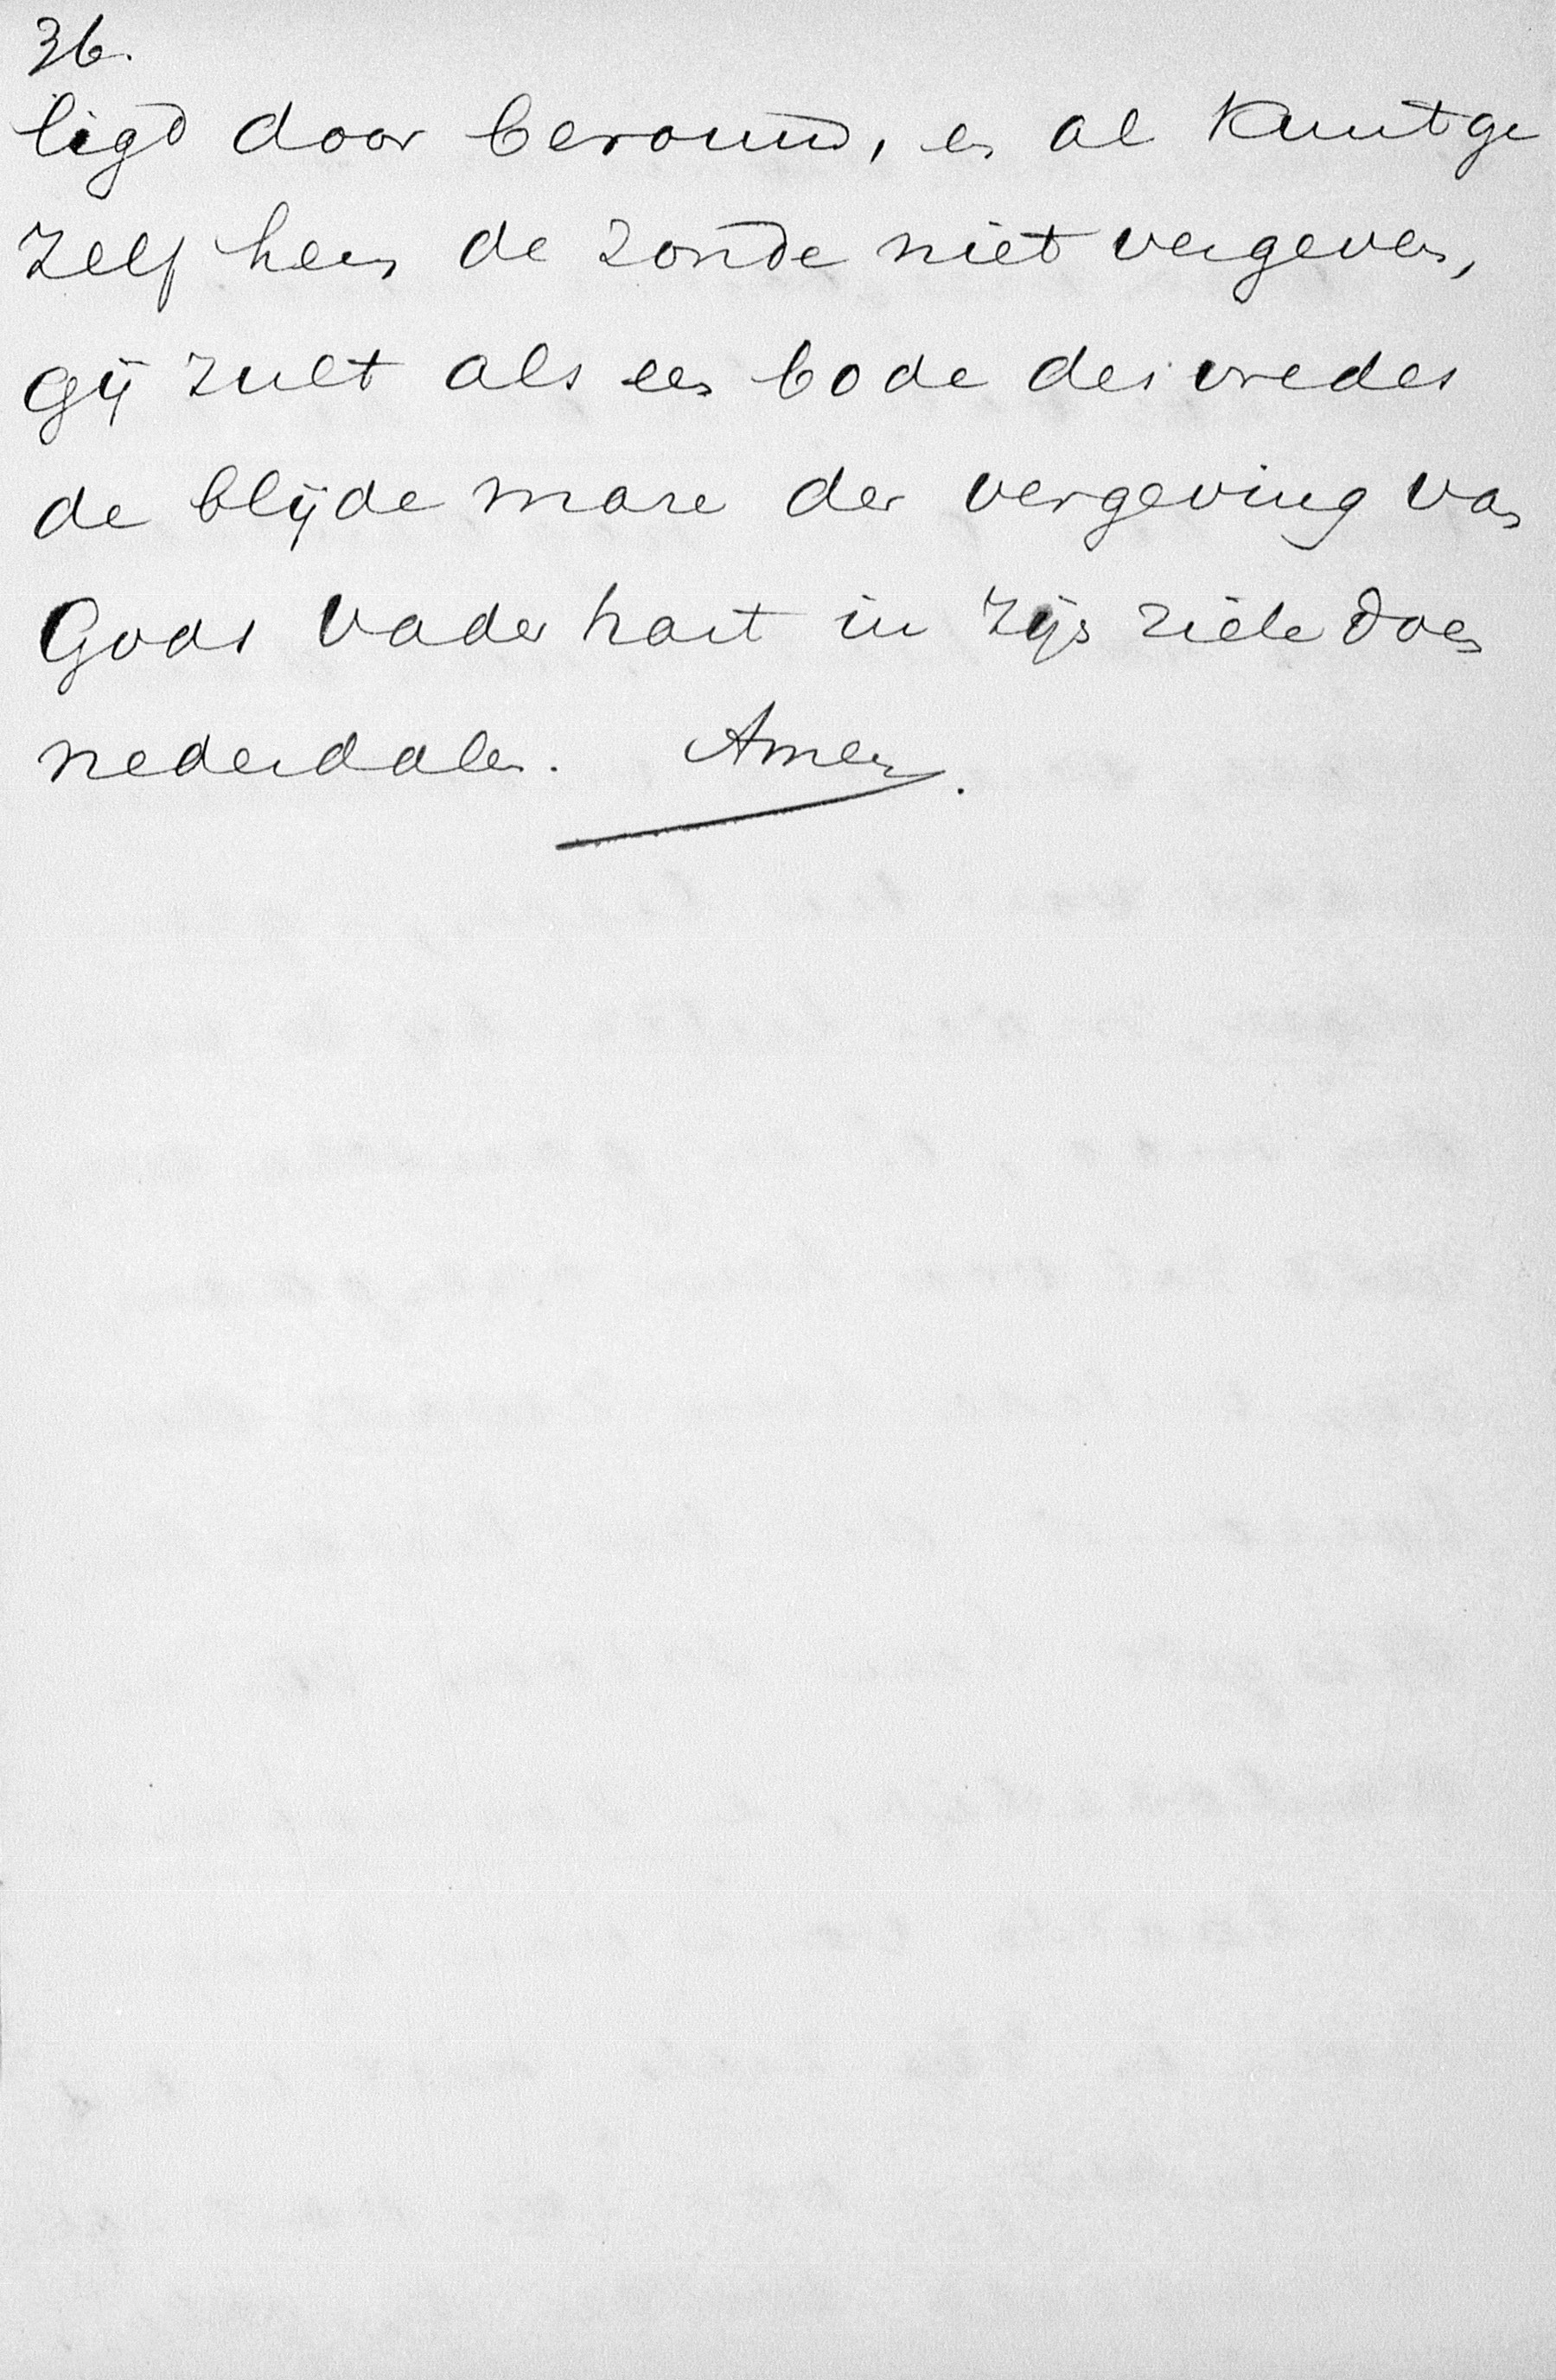 36.
ligd door berouw, en al kunt ge
zelf hem de zonde niet vergeven,
gij zult als een bode des vredes
de blijde mare der vergeving van
Gods Vaderhart in zijn ziele doen
nederdalen. Amen.